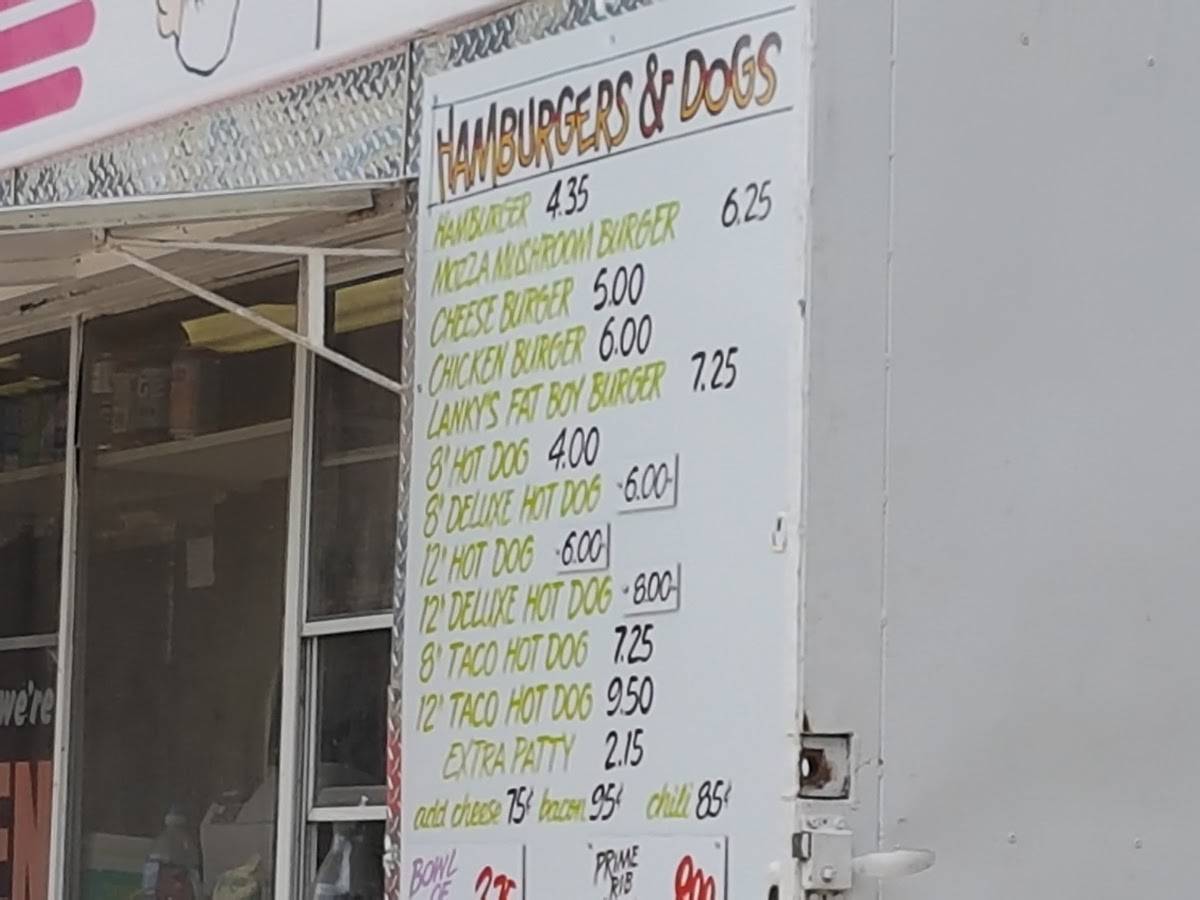 HAMBURGERS & DOGS
HAMBURGER 4.35
MOZZA MUSHROOM BURGER 6.25
CHEESE BURGER 5.00
CHICKEN BURGER 6.00
LANKY'S FAT BOY BURGER 7.25
8" HOT DOG 4.00
8" DELUXE HOT DOG 6.00
12" HOT DOG 6.00
12" DELUXE HOT DOG 8.00
8" TACO HOT DOG 7.25
12" TACO HOT DOG 9.50
EXTRA PATTY 2.15
add cheese 75¢ bacon 95¢ chili 85¢
BOWL
OF
PRIME
RIB
we're
EN